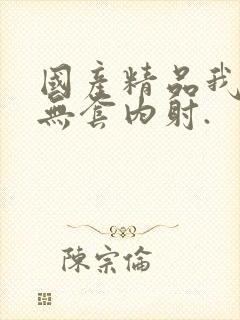 國產精品我
無套内射.
陳宗倫